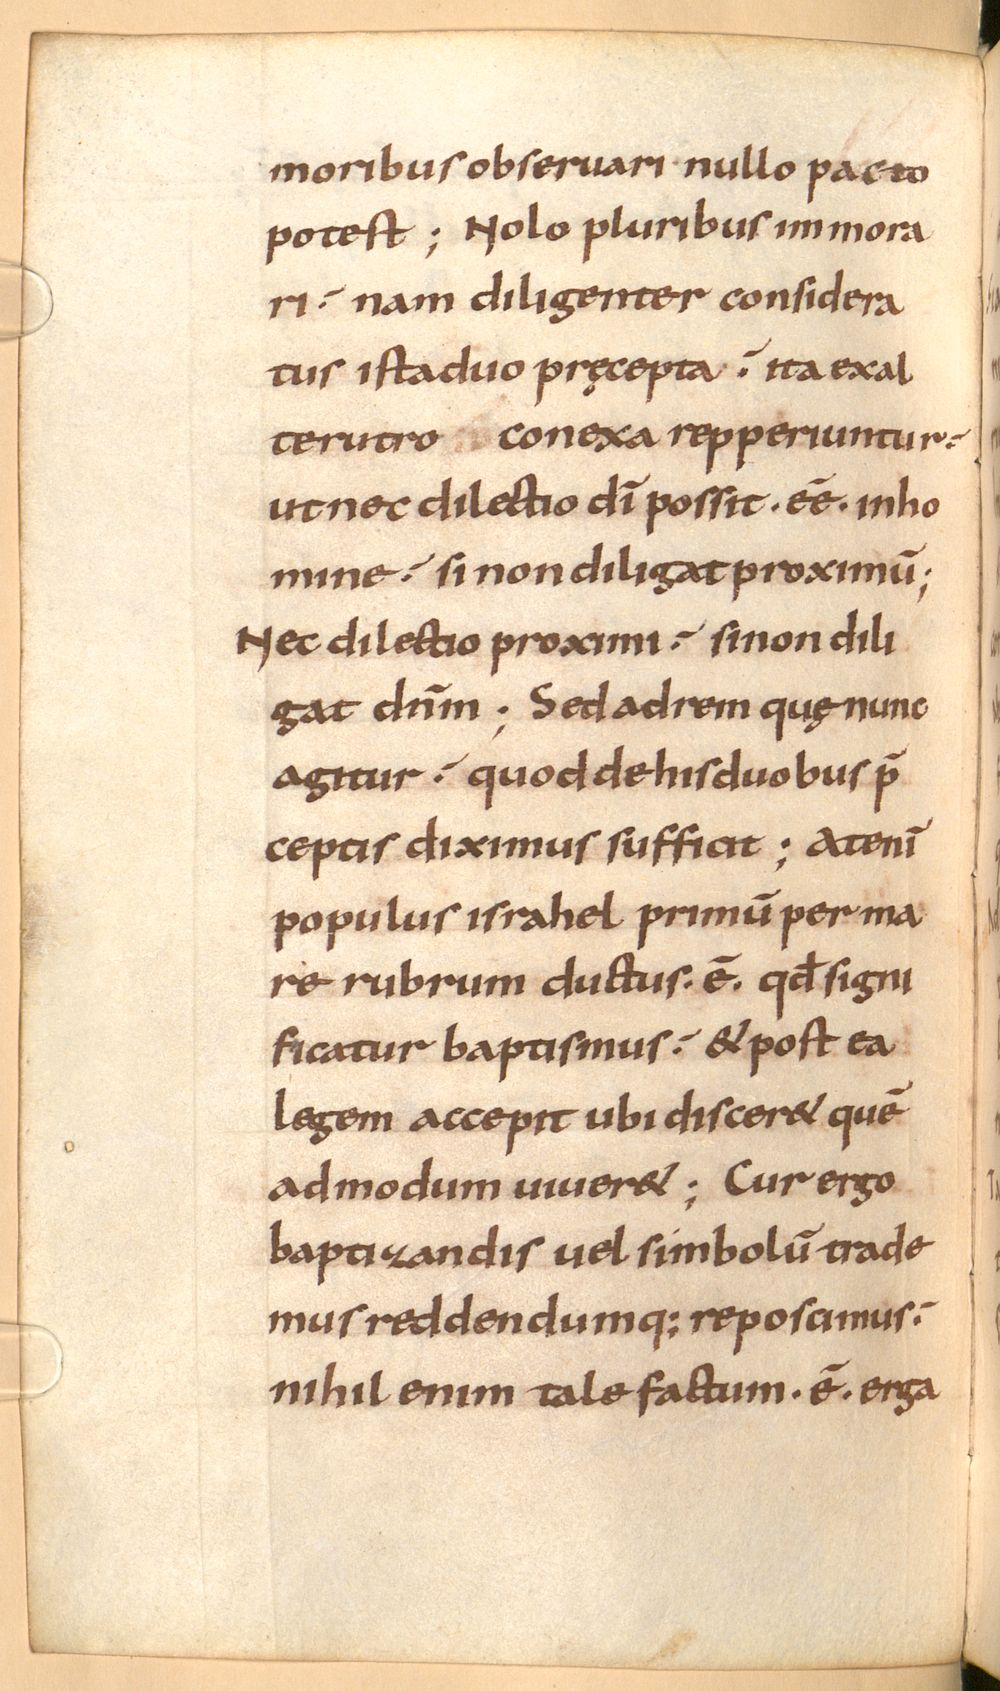 moribus obseruari nullo pacto
potest ; Nolo pluribus immora
ri :- nam diligenter considera
tus ista duo pręcepta :- ita ex al
terutro conexa repperiuntur :-
ut nec dilectio dī possit · eē · in ho
mine :- si non diligat proximū ;
Nec dilectio proximi :- si non dili
gat dn̄m ; Sed ad rem quę nunc
agitur :- quod de his duobus p̄
ceptis diximus sufficit ; At enī
populus israhel primū per ma
re rubrum ductus · ē · qd̄ signi
ficatur baptismus :- & post ea
legem accepit ubi discer& quē
admodum uiuer& ; Cur ergo
baptizandis uel simbolū trade
mus reddendumq; reposcimus :-
nihil enim tale factum · ē · erga